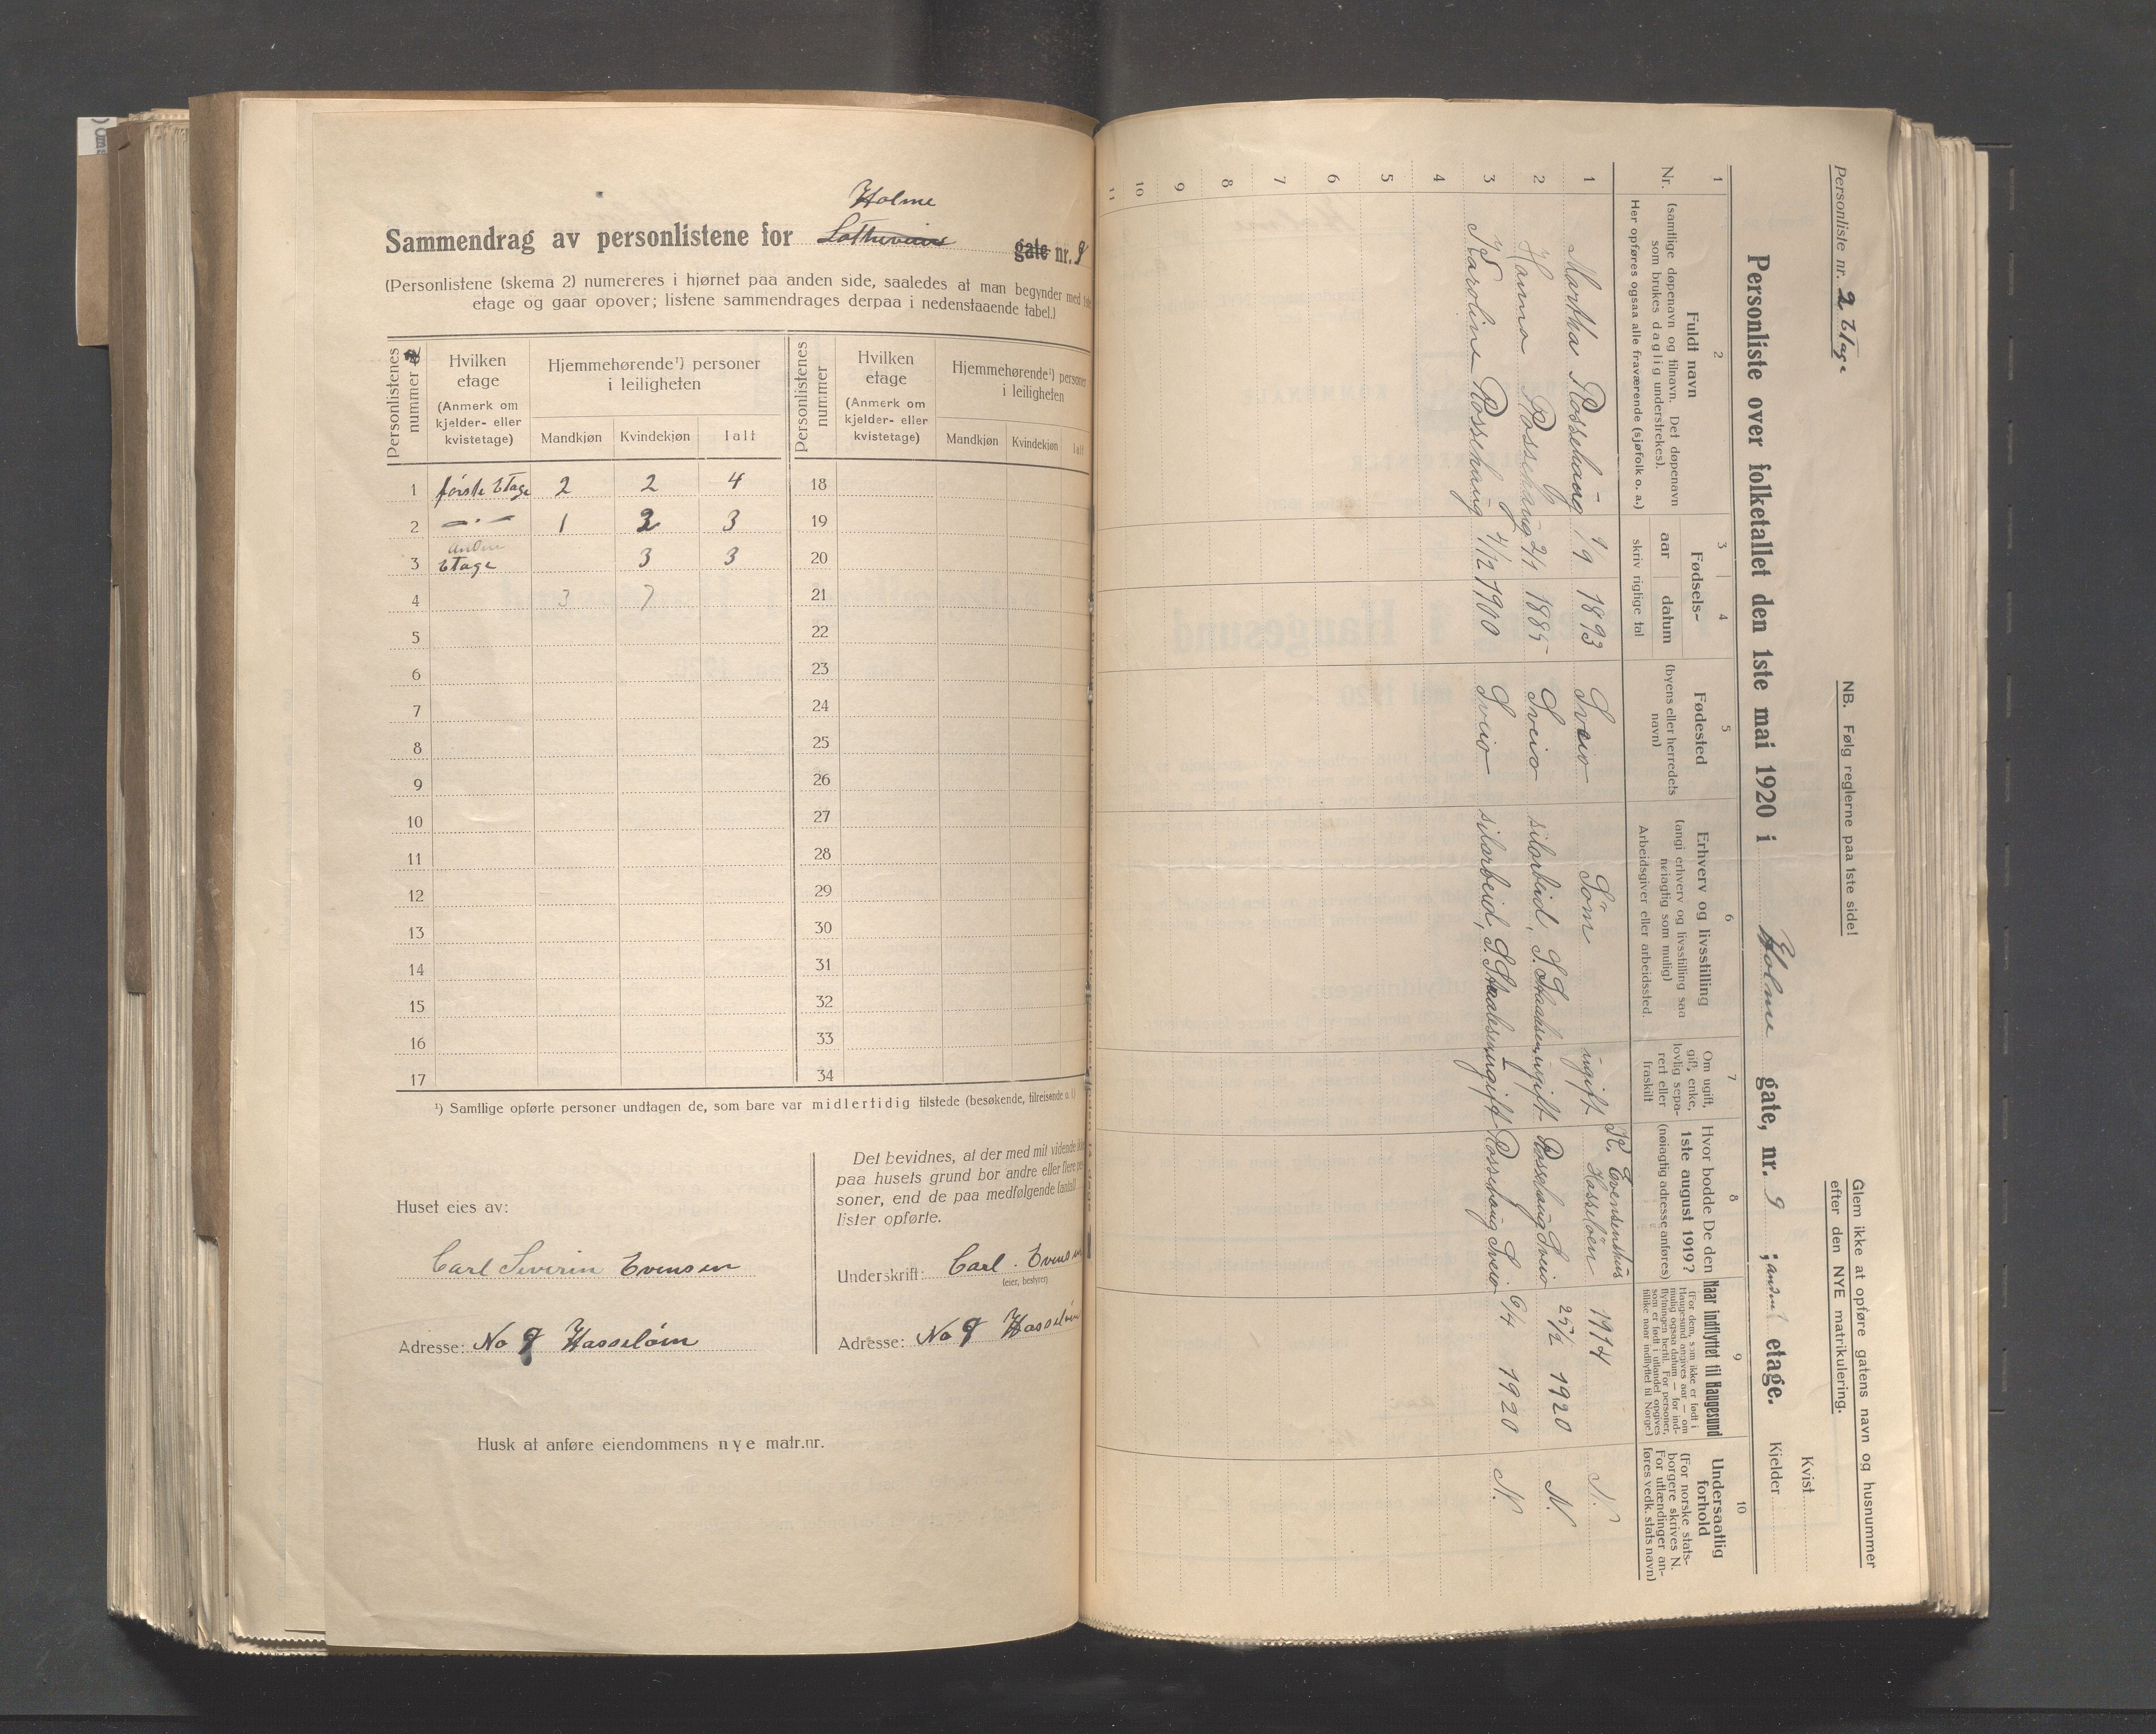 Holme
Sammendrag av personlistene for gate nr. 9
(Personlistene (skema 2) numereres i hjørnet paa anden side, saaledes at man begynder med
etage og gaar opover; listene sammendrages derpaa i nedenstaaende tabel.)
Personlistenes nummer
Hvilken etage (Anmerk om kjelder- eller kvistetage)
Hjemmehørende¹) personer i leiligheten
Mandkjøn Kvindekjøn Ialt
Personlistenes nummer
Hvilken etage (Anmerk om kjelder- eller kvistetage)
Hjemmehørende¹) personer i leiligheten
Mandkjøn Kvindekjøn Ialt
1 første Etage 2 2 4 18
2 — " — 1 2 3 19
anden
3 Etage 3 3 20
4 3 7 21
5 22
6 23
7 24
8 25
9 26
10 27
11 28
12 29
13 30
14 31
15 32
16 33
17 34
¹) Samtlige opførte personer undtagen de, som bare var midlertidig tilstede (besøkende, tilreisende o. l.)
Huset eies av:
Carl Severin Evensen
Adresse: No 9 Hasseløen
Det bevidnes, at der med mit vidende ikke
paa husets grund bor andre eller flere per-
soner, end de paa medfølgende (antal)
lister opførte.
Underskrift: Carl . Evensen
(eier, bestyrer)
Adresse: No 9 Hasseløen
Husk at anføre eiendommens nye matr.nr.
Personliste nr. 2 Etage
NB. Følg reglerne paa 1ste side!
Glem ikke at opføre gatens navn og husnummer
efter den NYE matrikulering.
Kvist
Personliste over folketallet den 1ste mai 1920 i Holme gate, nr. 9 ; anden etage.
Kjelder
1 2 3 4 5 6 7 8 9 10
Nr.
Fuldt navn
(samtlige døpenavn og tilnavn. Det døpenavn
som brukes daglig understrekes).
Her opføres ogsaa alle fraværende (sjøfolk o. a.)
Fødsels-
aar datum
skriv riglige tal
Fødested
(byens eller herredets
navn)
Erhverv og livsstilling
(angi erhverv og livsstilling saa
nøiagtig som mulig)
Arbeidsgiver eller arbeidssted.
Om ugift,
gift, enke,
lovlig sepa-
rert eller
fraskilt
Hvor bodde De den
1ste august 1919?
(nøiagtig adresse anføres)
Naar indflyttet til Haugesund
(For dem, som ikke er født i
Haugesund angives aar — om
mulig ogsaa datum — for ind-
flytningen hertil. For personer,
som er født i utlandet opgives
tillike naar indflyttet til Norge)
Undersaatlig
forhold
(For norske stats-
borgere skrives N.
For utlændinger an-
føres vedk. stats navn)
K. Evensenshus
1 Martha Rossehaug 1/9 1893 Sveio Söm ugift Hasseløen 1914 N.
2 Hanna Rossehaug 2/1 1885 Sveio silarbeid, S. Staalesen, ugift Rossehaug Sveio 25/2 1920 N.
3 Karoline Rossehaug 4/12 1900 Sveio silarbeid, S. Staalesen, ugift Rossehaug Sveio 6/4 1920 N.
4
5
6
7
8
9
10
11